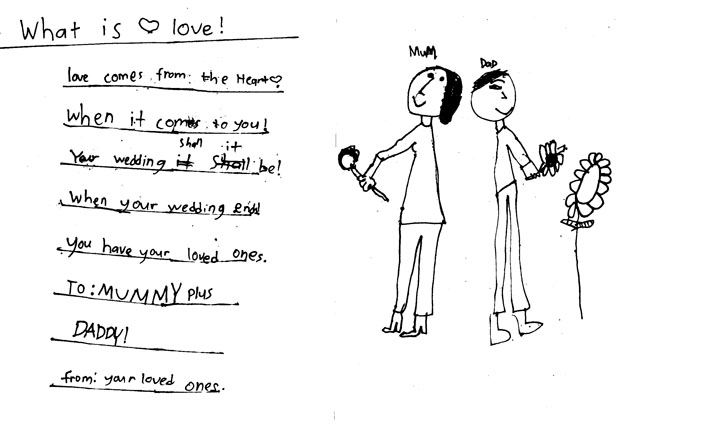 What is ♡ love!
love comes from: the Heart♡.
When it comes to you!
Your wedding shall it be!
When your wedding ends
you have your loved ones.
To: MUMMY plus
DADDY!
from: your loved ones.
MUM
DAD